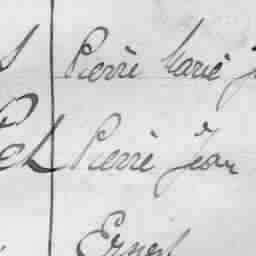 Pierre Marie
Pierre Jean
Ernest